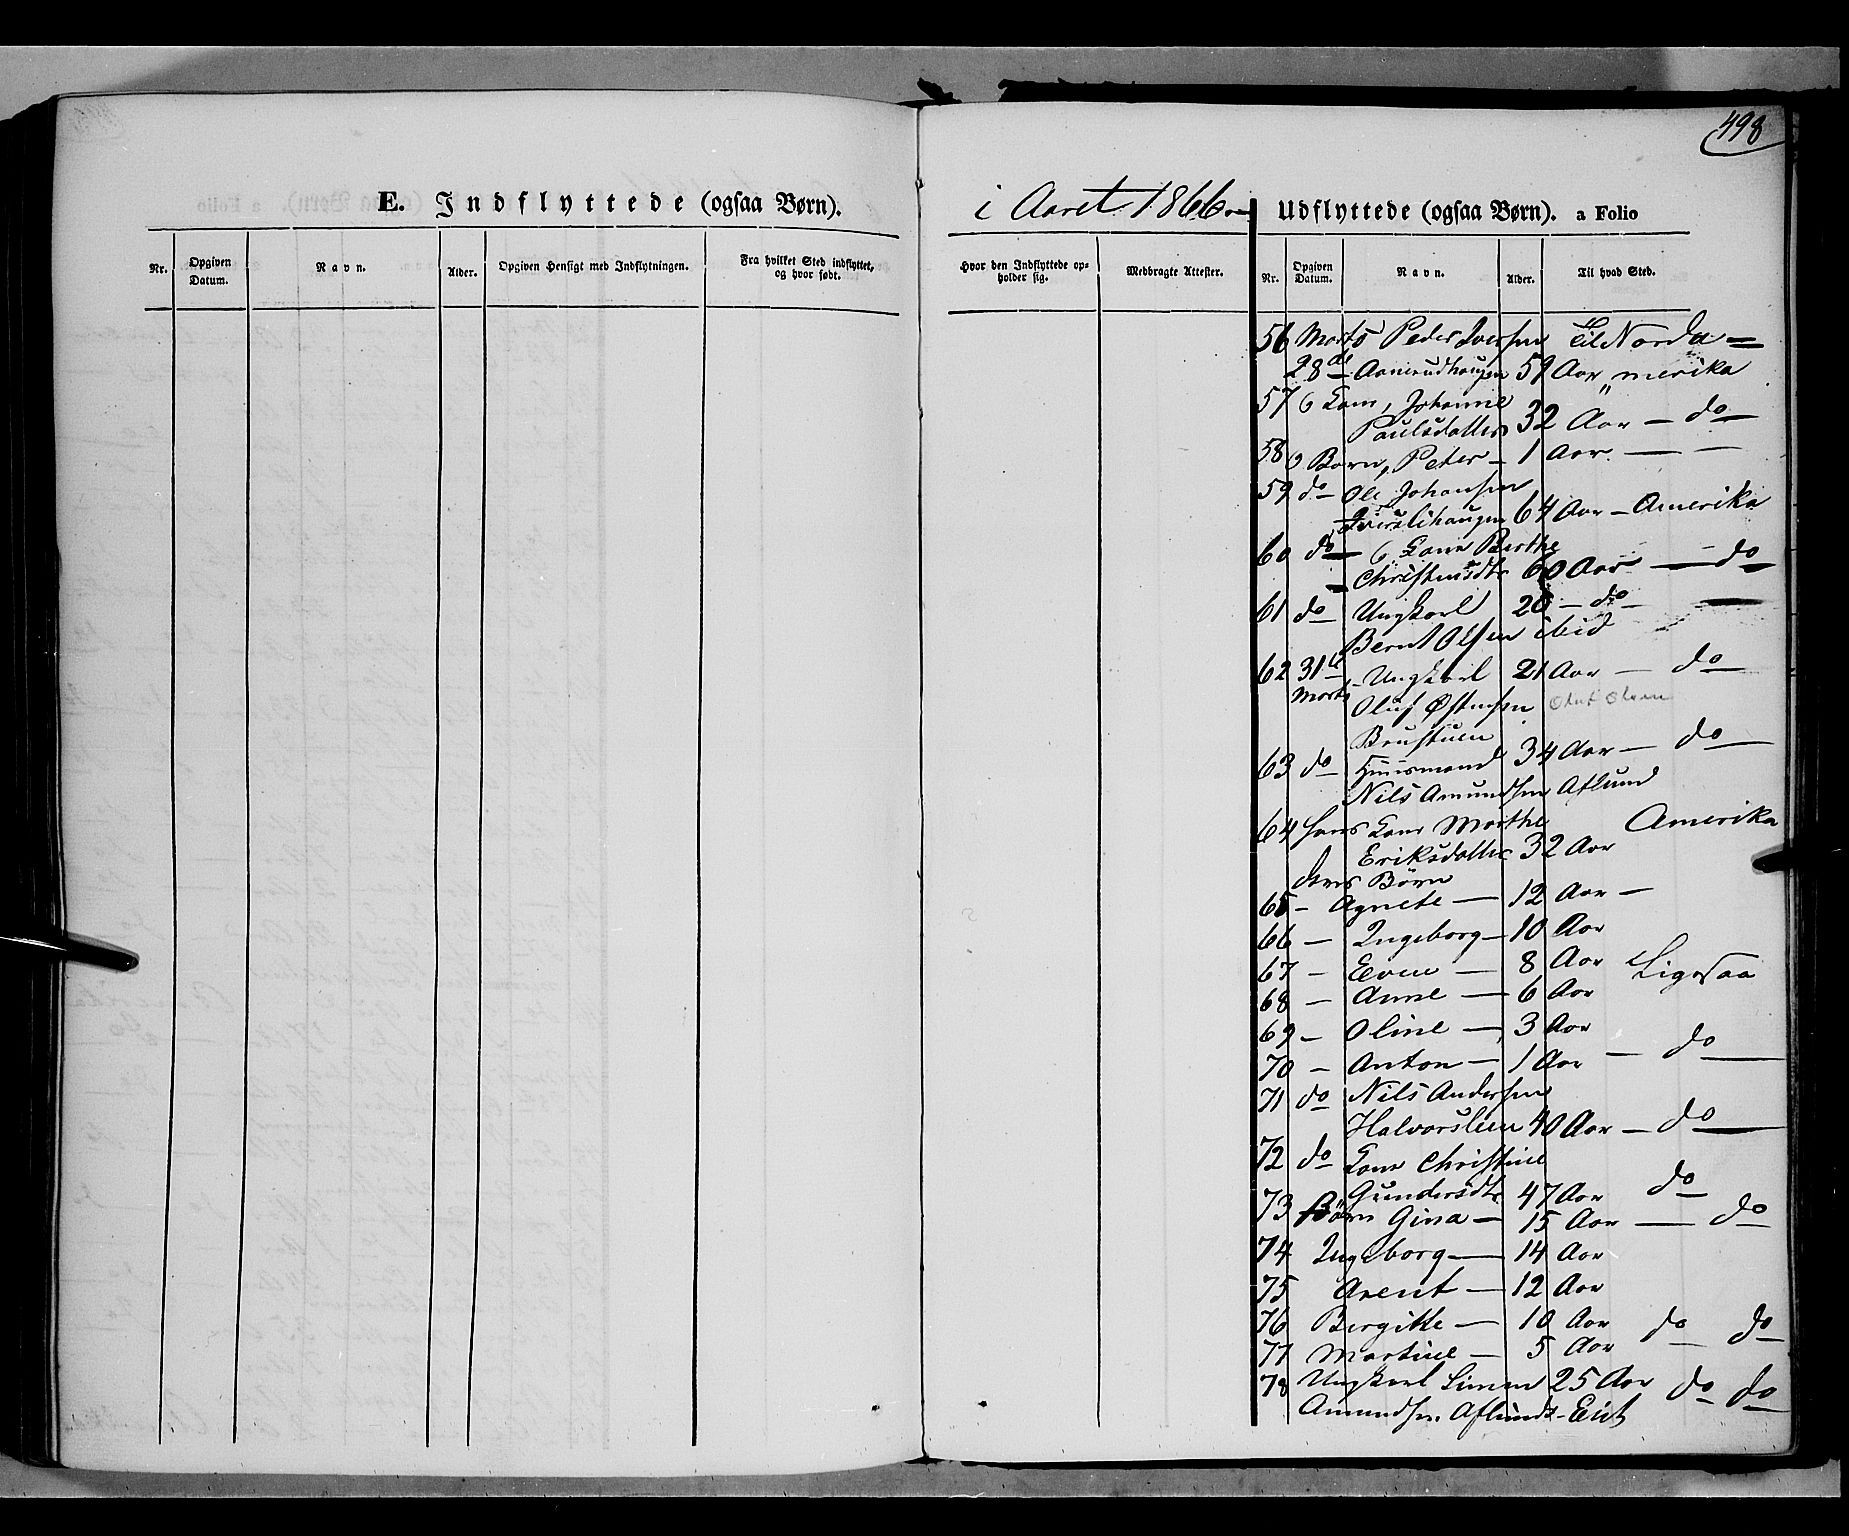 498
E. Indflyttede (ogsaa Børn).
i Aaret 1866
Udflyttede (ogsaa Børn). a Folio
Nr. Opgiven Datum. Navn. Alder. Opgiven Hensigt med Indflytningen. Fra hvilket Sted indflyttet, og hvor født.
Hvor den Indflyttede opholder sig. Medbragte Attester. Nr. Opgiven Datum. Navn. Alder. Til hvad Sted.
56 Marts Peder Iversen Til Norda=
28de Aanerudhaugen 59 Aar „ merika
57 Johanne
Paulsdatter 32 Aar — do
58 Børn, Peter — 1 Aar — —
59 do Ole Johansen
64 Aar — Amerika
60 do — Kone Berthe
Christensdtr 60 Aar — do
61 do Ungkarl 20 — do —
Bernt Olsen ibid
62 31te Ungkarl 21 Aar — do
Marts Oluf Østensen Oluf Olsen
Brustuen
63 do Huusmand 34 Aar — do
Nils Amundsen Aflund
64 hans Kone Marthe Amerika
Eriksdatter 32 Aar
deres Børn
65 — Agnete — 12 Aar —
66 — Ingeborg — 10 Aar
67 — Even — 8 Aar Ligesaa
68 — Anne — 6 Aar
69 — Oline — 3 Aar
70 — Anton — 1 Aar — do
71 do Nils Andersen
Halvorslien 40 Aar — do
72 do Kone Christine
Gundersdtr 47 Aar do
73 Børn Gina — 15 Aar — do
74 Ingeborg — 14 Aar
75 Arent — 12 Aar
76 Bergitte — 10 Aar do do
77 Martine — 5 Aar
78 Ungkarl Simen 25 Aar do do
Amundsen Aflunds-Eiet